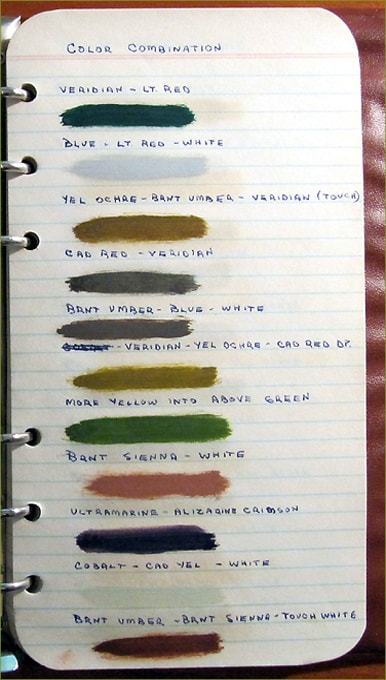 COLOR COMBINATION
VERIDIAN - LT. RED
BLUE - LT RED - WHITE
YEL OCHRE - BRNT UMBER - VERIDIAN (TOUCH)
CAD RED - VERIDIAN
BRNT UMBER - BLUE - WHITE
- VERIDIAN - YEL OCHRE - CAD RED DP.
MORE YELLOW INTO ABOVE GREEN
BRNT SIENNA - WHITE
ULTRAMARINE - ALIZARINE CRIMSON
COBALT - CAD YEL - WHITE
BRNT UMBER - BRNT SIENNA - TOUCH WHITE